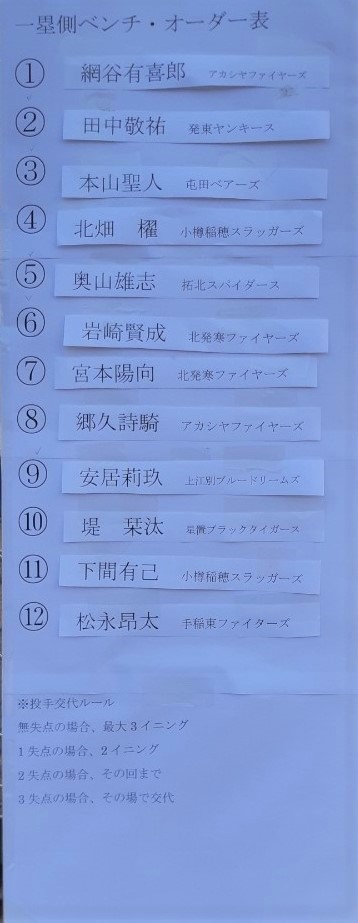 一塁側ベンチ・オーダー表
① 網谷有喜郎 アカシヤファイヤーズ
② 田中敬祐 発東ヤンキース
③ 本山聖人 屯田ベアーズ
④ 北畑 櫂 小樽稲穂スラッガーズ
⑤ 奥山雄志 拓北スパイダース
⑥ 岩崎賢成 北発寒ファイヤーズ
⑦ 宮本陽向 北発寒ファイヤーズ
⑧ 郷久詩騎 アカシヤファイヤーズ
⑨ 安居莉玖 上江別ブルードリームズ
⑩ 堤 栞汰 星置ブラックタイガース
⑪ 下間有己 小樽稲穂スラッガーズ
⑫ 松永昂太 手稲東ファイターズ
※投手交代ルール
無失点の場合、最大3イニング
1失点の場合、2イニング
2失点の場合、その回まで
3失点の場合、その場で交代